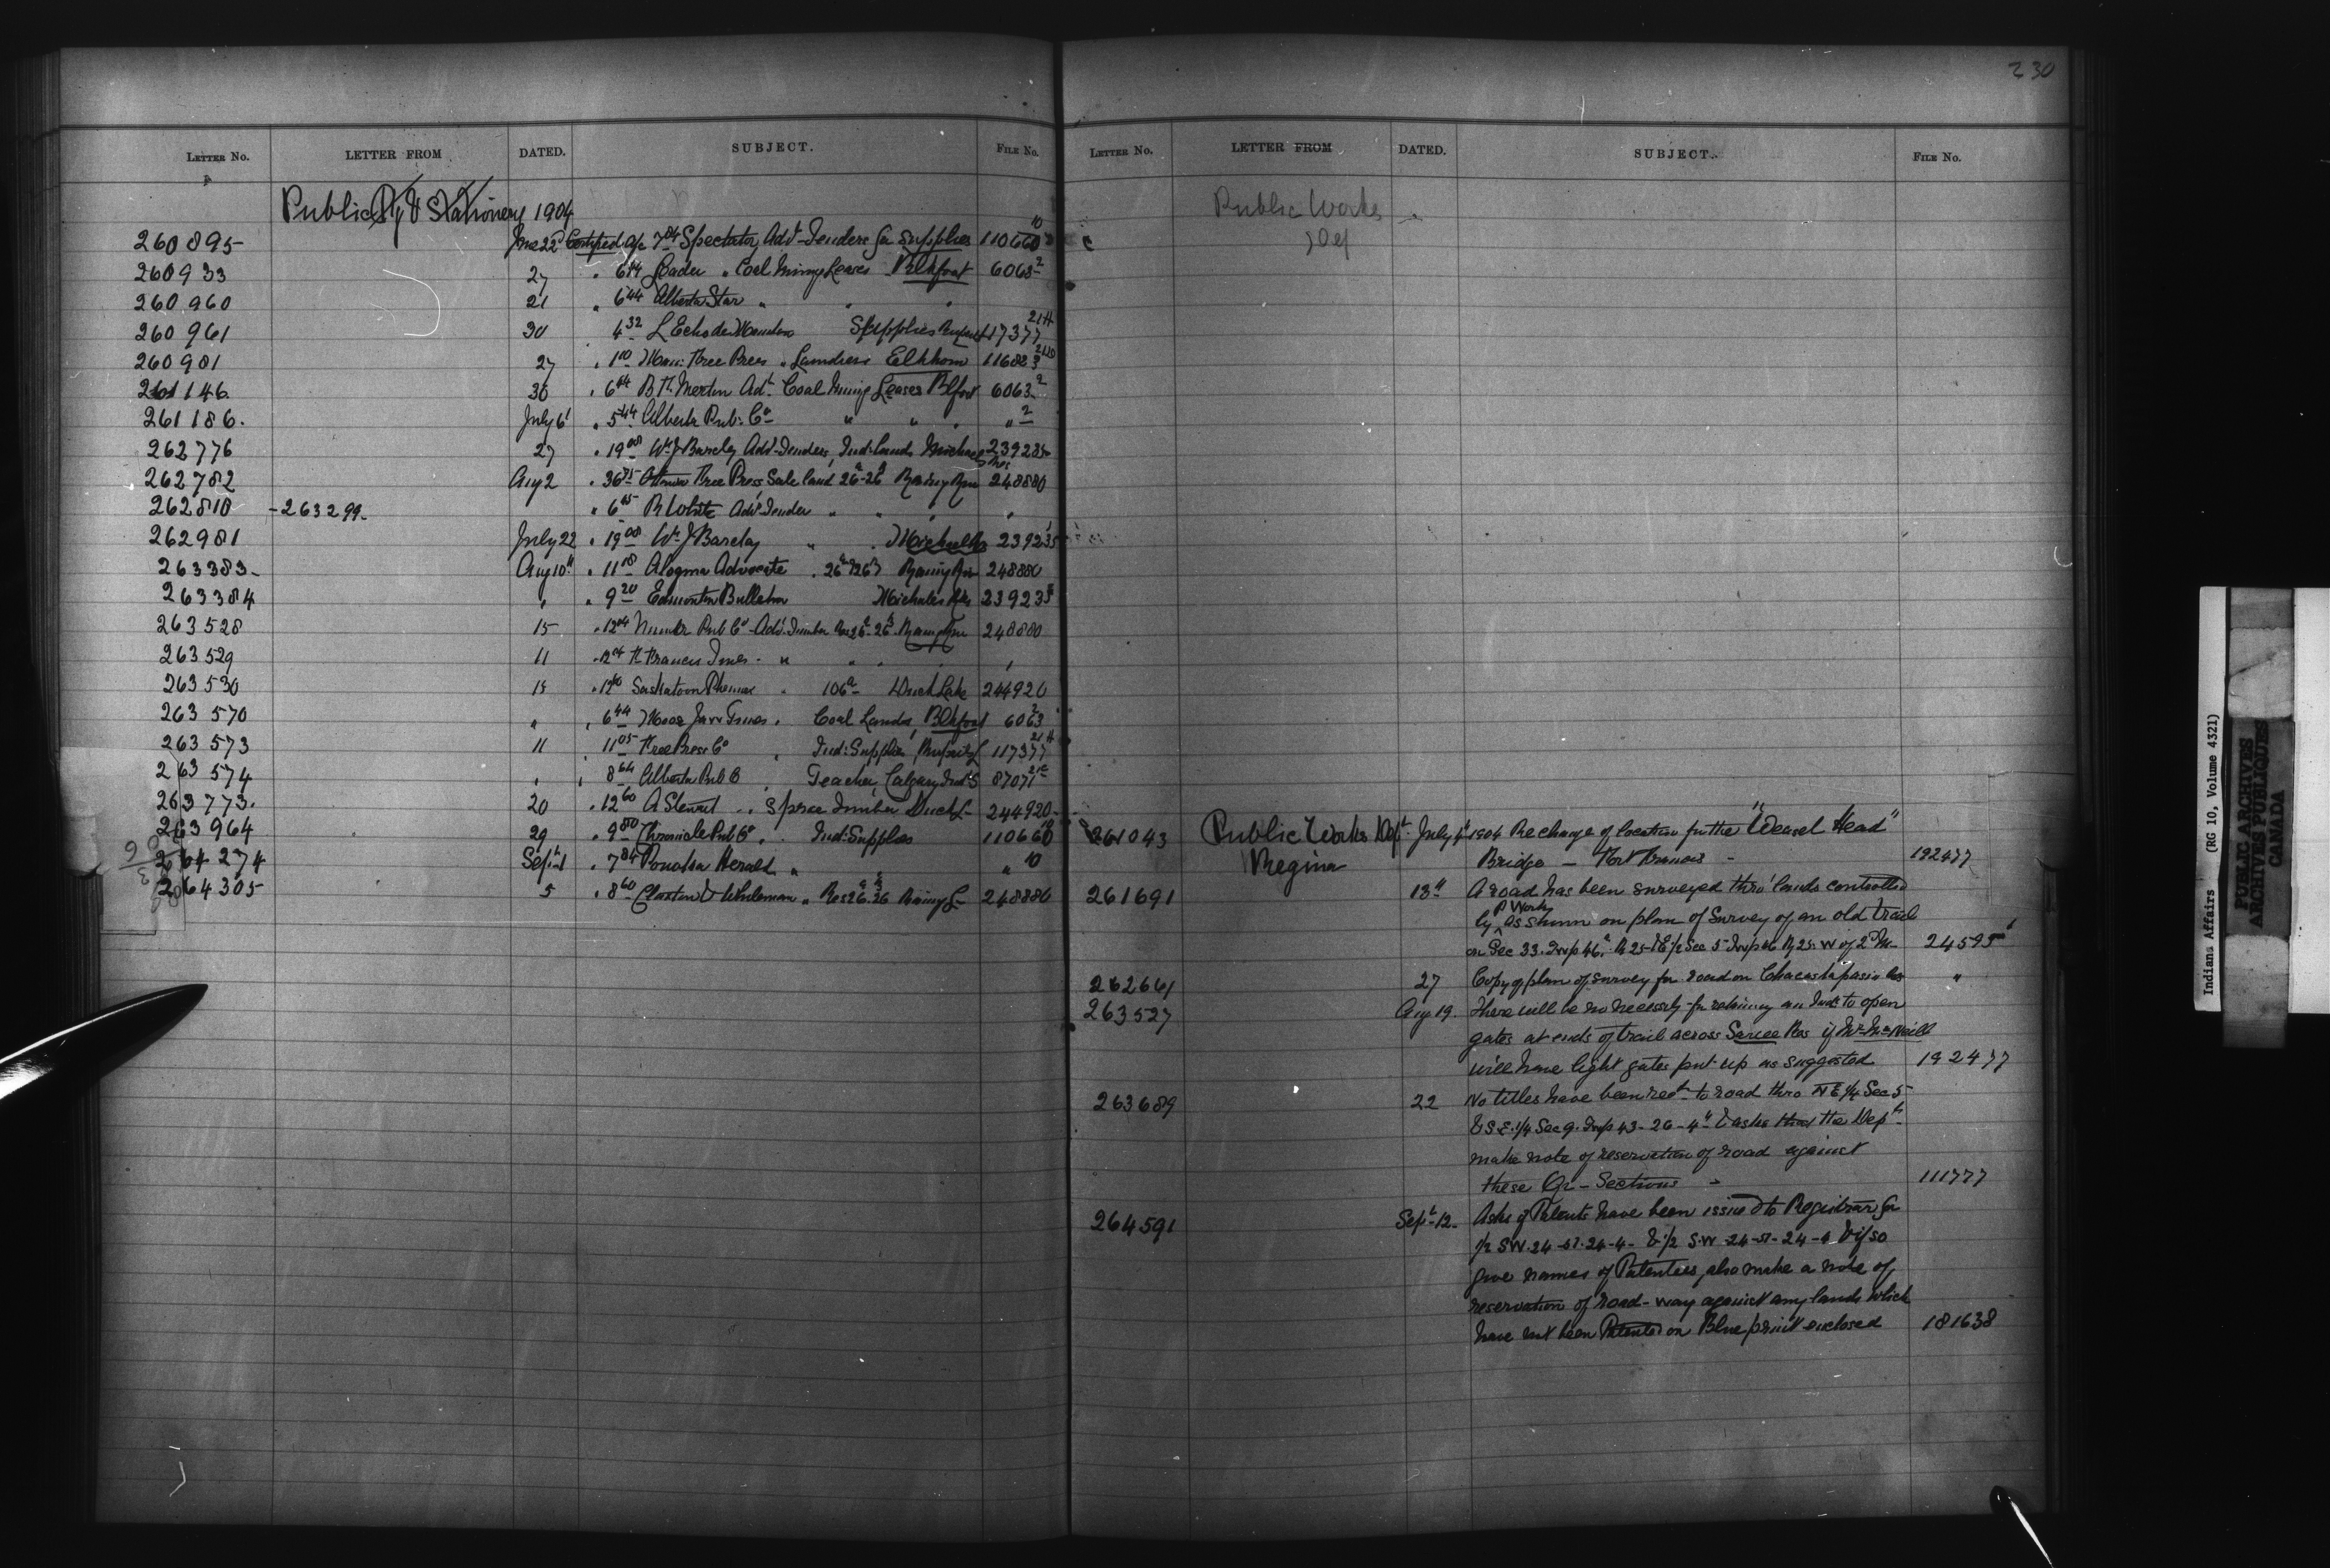 230
LETTER NO. LETTER FROM DATED. SUBJECT. FILE No.
Public Ptg & Stationery 1904
260895 June 22 Certified a/c 7.84 Spectator, Advt Tenders for Supplies 110660 10
260933 27 " 6 44 Leader " Coal Mining Leases Blkfoot 6063 2
260960 21 " 6 44 Alberta Star " " "
260961 30 4 32 L Echo de Manitoba Supplies 117377 21H
260981 27 " 1 10 Mani: Free Press " Elkhorn 116883
261146 30 " 6 44 Advt Coal Mining Leases Blfoot 6063 2
261186. July 6 " 5 44 Alberta Pub: Co " " " " 2
262776 27 " 19 00 Wm J Barclay Advt Tenders, Ind: Lands Michael 239235
262782 Aug 2 " Ottawa Free Press Sale land 26a-26b Rainy Rivr 248880
262810 - 263299. " 6 R White Advt Timber " " " "
262981 July 22 " 19 00 Wm J Barclay " " Michaels 239235
263383 Aug 10th " 11 Algoma Advocate " 26a & 26b Rainy Riv 248880
263384 " " 9 20 Edmonton Bulletin Michaels Res 239235
263528 15 " 12 04 Pub Co Advt Timber Res 26a-26b Rainy Rivr 248880
263529 11 " 12 04 Ft Frances Times " " " " "
263530 15 " 12 60 Saskatoon Phenix " 106a Duck Lake 244920
263570 " " 6 44 Moose Jaw Times " Coal Lands, Blkfoot 6063 2
263573 11 11 05 Free Press Co " Ind: Supplies, 117377 21H
263574 " " 8 64 Alberta Pub Co " Teacher, Calgary Ind S 87071
263773. 20 " 12 60 A Stewart " " Spruce Timber Duck L 244920
263964 29 " 9 80 Chronicle Pub Co " " Ind: Supplies 110660 10
264274 Sept 1 " 7 84 Ponoka Herald " " 10
264305 5 " 8 60 Claxton & " Res 26a.26b Rainy L 248880
LETTER NO. LETTER FROM DATED. SUBJECT. FILE NO.
Public Works
Def
261043 Public Works Dept July 4 1904 Re change of location for the "Weasel Head"
Regina Bridge — 192477
261691 13th A road has been surveyed thro' lands controlled
by P Works as shewn on plan of Survey of an old trail
on Sec 33. Twp 46. R 25 & E 1/2 Sec 5 Twp 46 R 25. W of 2d M- 24595 1
262661 27 Copy of plan of survey for road on Chacastapasin Res "
263527 Aug 19. There will be no necessity for retaining an Ind: to open
gates at ends of trail across Sarcee Res if Mr McNeill
will have light gates put up as suggested 192477
263689 22 No titles have been recd to road thro N E 1/4 Sec 5
& S.E. 1/4 Sec 9. Twp 43-26-4th & asks that the Dept
make note of reservation of road against
these Qr - Sections - 111777
264591 Sept 12. Asks if Patents have been issued to Registrar for
1/2 SW. 24 24-4- & 1/2 S.W 24 24-4 & if so
give names of Patentees, also make a note of
reservation of road-way against any lands which
have not been Patented on Blue print enclosed 181638
Indians Affairs (RG 10, Volume 4321)
PUBLIC ARCHIVES
ARCHIVES PUBLIQUES
CANADA